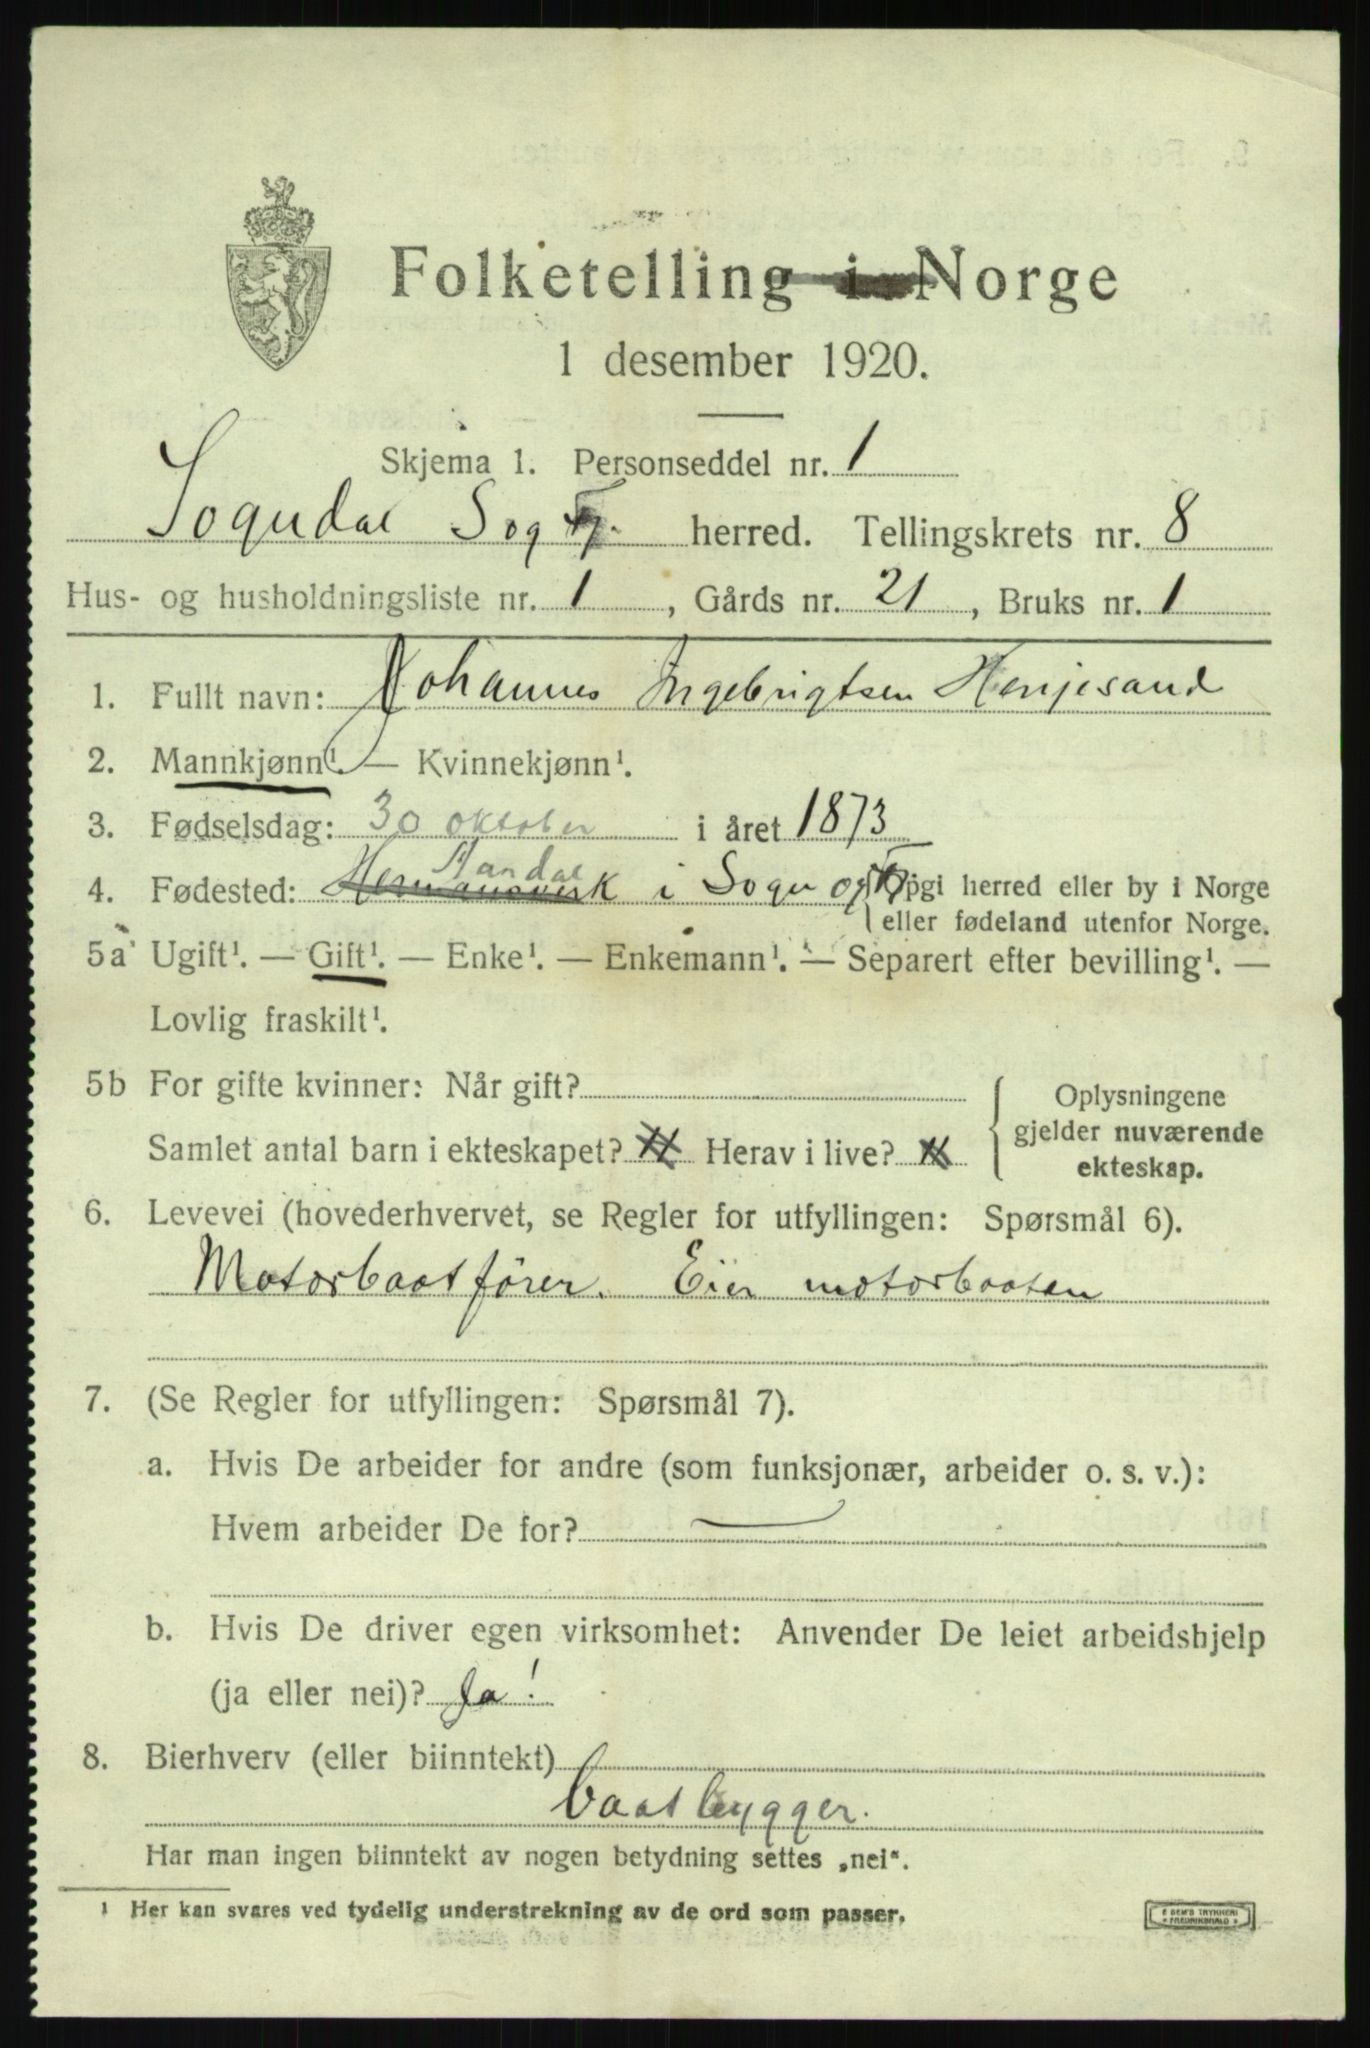 Folketelling i Norge
1 desember 1920.
Skjema 1. Personseddel nr. 1
Sogndal Sogn Fj. herred. Tellingskrets nr. 8
Hus- og husholdningsliste nr. 1, Gårds nr. 21, Bruks nr. 1
1. Fullt navn: Johannes Ingebrigtsen Henjesand
2. Mannkjønn¹. — Kvinnekjønn¹.
3. Fødselsdag: 30 oktober i året 1873
4. Fødested: Hermansverk i Sogn og Fj. {Opgi herred eller by i Norge
eller fødeland utenfor Norge.
5a Ugift¹. — Gift¹. — Enke¹. — Enkemann¹. — Separert efter bevilling¹. —
Lovlig fraskilt¹.
5b For gifte kvinner: Når gift?
Samlet antal barn i ekteskapet? Herav i live?
Oplysningene
gjelder nuværende
ekteskap.
6. Levevei (hovederhvervet, se Regler for utfyllingen: Spørsmål 6).
Motorbaatfører. Eier motorbaaten
7. (Se Regler for utfyllingen: Spørsmål 7).
a. Hvis De arbeider for andre (som funksjonær, arbeider o. s. v.):
Hvem arbeider De for? —
b. Hvis De driver egen virksomhet: Anvender De leiet arbeidshjelp
(ja eller nei)? Ja!
8. Bierhverv (eller biinntekt)
baatbygger.
Har man ingen biinntekt av nogen betydning settes „nei“.
¹ Her kan svares ved tydelig understrekning av de ord som passer.